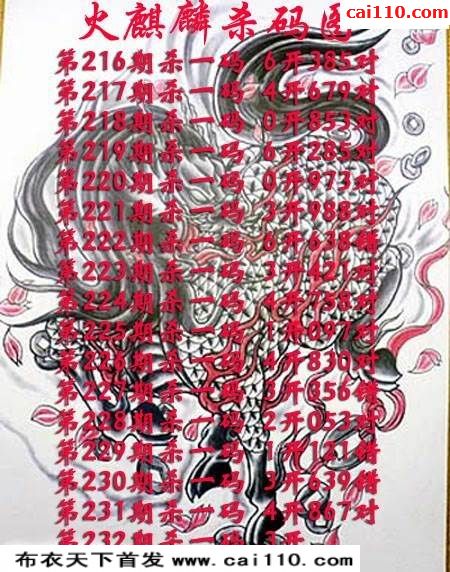 cai110.com
火麒麟杀码图
第216期杀一码 6开385对
第217期杀一码 4开679对
第218期杀一码 0开853对
第219期杀一码 6开285对
第220期杀一码 0开973对
第221期杀一码 3开988对
第222期杀一码 6开638错
第223期杀一码 3开421对
第224期杀一码 4开758对
第225期杀一码 1开097对
第226期杀一码 4开830对
第227期杀一码 3开356错
第228期杀一码 2开053对
第229期杀一码 1开121错
第230期杀一码 3开639错
第231期杀一码 4开867对
第232期杀一码 3开
布衣天下首发 www.cai110.com